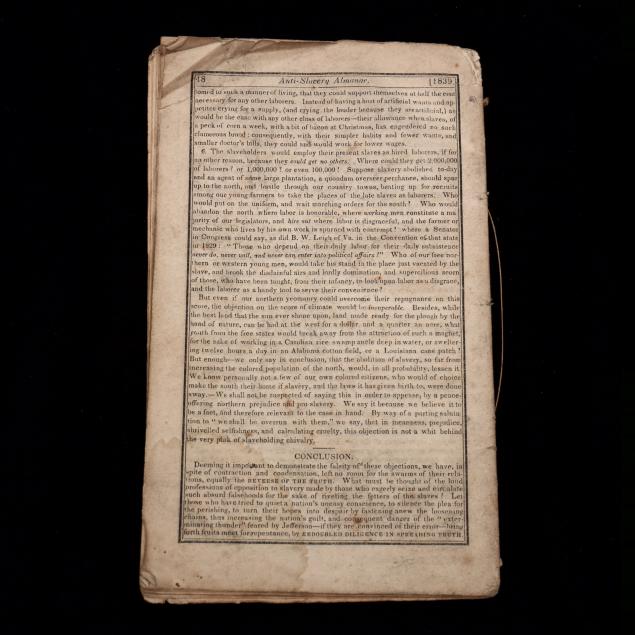 48 Anti-Slavery Almanac. [1839
tomed to such a manner of living, that they could support themselves at half the cost
necessary for any other laborers. Instead of having a host of artificial wants and ap-
petites crying for a supply, (and crying the louder because they are artificial,) as
would be the case with any other class of laborers—their allowance when slaves, of
a peck of corn a week, with a bit of bacon at Christmas, has engendered no such
clamorous brood; consequently, with their simpler habits and fewer wants, and
smaller doctor's bills, they could and would work for lower wages.
6. The slaveholders would employ their present slaves as hired laborers, if for
no other reason, because they could get no others. Where could they get 2,000,000
of laborers? or 1,000,000? or even 100,000? Suppose slavery abolished to-day
and an agent of some large plantation, a quondam overseer perchance, should spur
up to the north, and bustle through our country towns, beating up for recruits
among our young farmers to take the places of the late slaves as laborers. Who
would put on the uniform, and wait marching orders for the south? Who would
abandon the north where labor is honorable, where working men constitute a ma-
jority of our legislators, and hire out where labor is disgraceful, and the farmer or
mechanic who lives by his own work is spurned with contempt? where a Senator
in Congress could say, as did B. W. Leigh of Va. in the Convention of that state
in 1829: "Those who depend on their daily labor for their daily subsistence
never do, never will, and never can enter into political affairs!" Who of our free nor-
thern or western young men, would take his stand in the place just vacated by the
slave, and brook the disdainful airs and lordly domination, and supercilious scorn
of those, who have been taught, from their infancy, to look upon labor as a disgrace,
and the laborer as a handy tool to serve their convenience?
But even if our northern yeomanry could overcome their repugnance on this
score, the objection on the score of climate would be insuperable. Besides, while
the best land that the sun ever shone upon, land made ready for the plough by the
hand of nature, can be had at the west for a dollar and a quarter an acre, what
youth from the free states would break away from the attraction of such a magnet,
for the sake of working in a Carolina rice swamp ancle deep in water, or swelter-
ing twelve hours a day in an Alabama cotton field, or a Louisiana cane patch?
But enough—we only say in conclusion, that the abolition of slavery, so far from
increasing the colored population of the north, would, in all probability, lessen it.
We know personally not a few of our own colored citizens, who would of choice
make the south their home if slavery, and the laws it has given birth to, were done
away.—We shall not be suspected of saying this in order to appease, by a peace-
offering northern prejudice and pro-slavery. We say it because we believe it to
be a fact, and therefore relevant to the case in hand. By way of a parting saluta-
tion to "we shall be overrun with them," we say, that in meanness, prejudice,
shrivelled selfishness, and calculating cruelty, this objection is not a whit behind
the very pink of slaveholding chivalry.
CONCLUSION.
Deeming it important to demonstrate the falsity of these objections, we have, in
spite of contraction and condensation, left no room for the swarms of their rela-
tions, equally the REVERSE OF THE TRUTH. What must be thought of the loud
professions of opposition to slavery made by those who eagerly seize and circulate
such absurd falsehoods for the sake of riveting the fetters of the slaves? Let
those who have tried to quiet a nation's uneasy conscience, to silence the plea for
the perishing, to turn their hopes into despair by fastening anew the loosening
chains, thus increasing the nation's guilt, and consequent danger of the "exter-
minating thunder" feared by Jefferson—if they are convinced of their error—bring
forth fruits meet for repentance, by REDOUBLED DILIGENCE IN SPREADING TRUTH